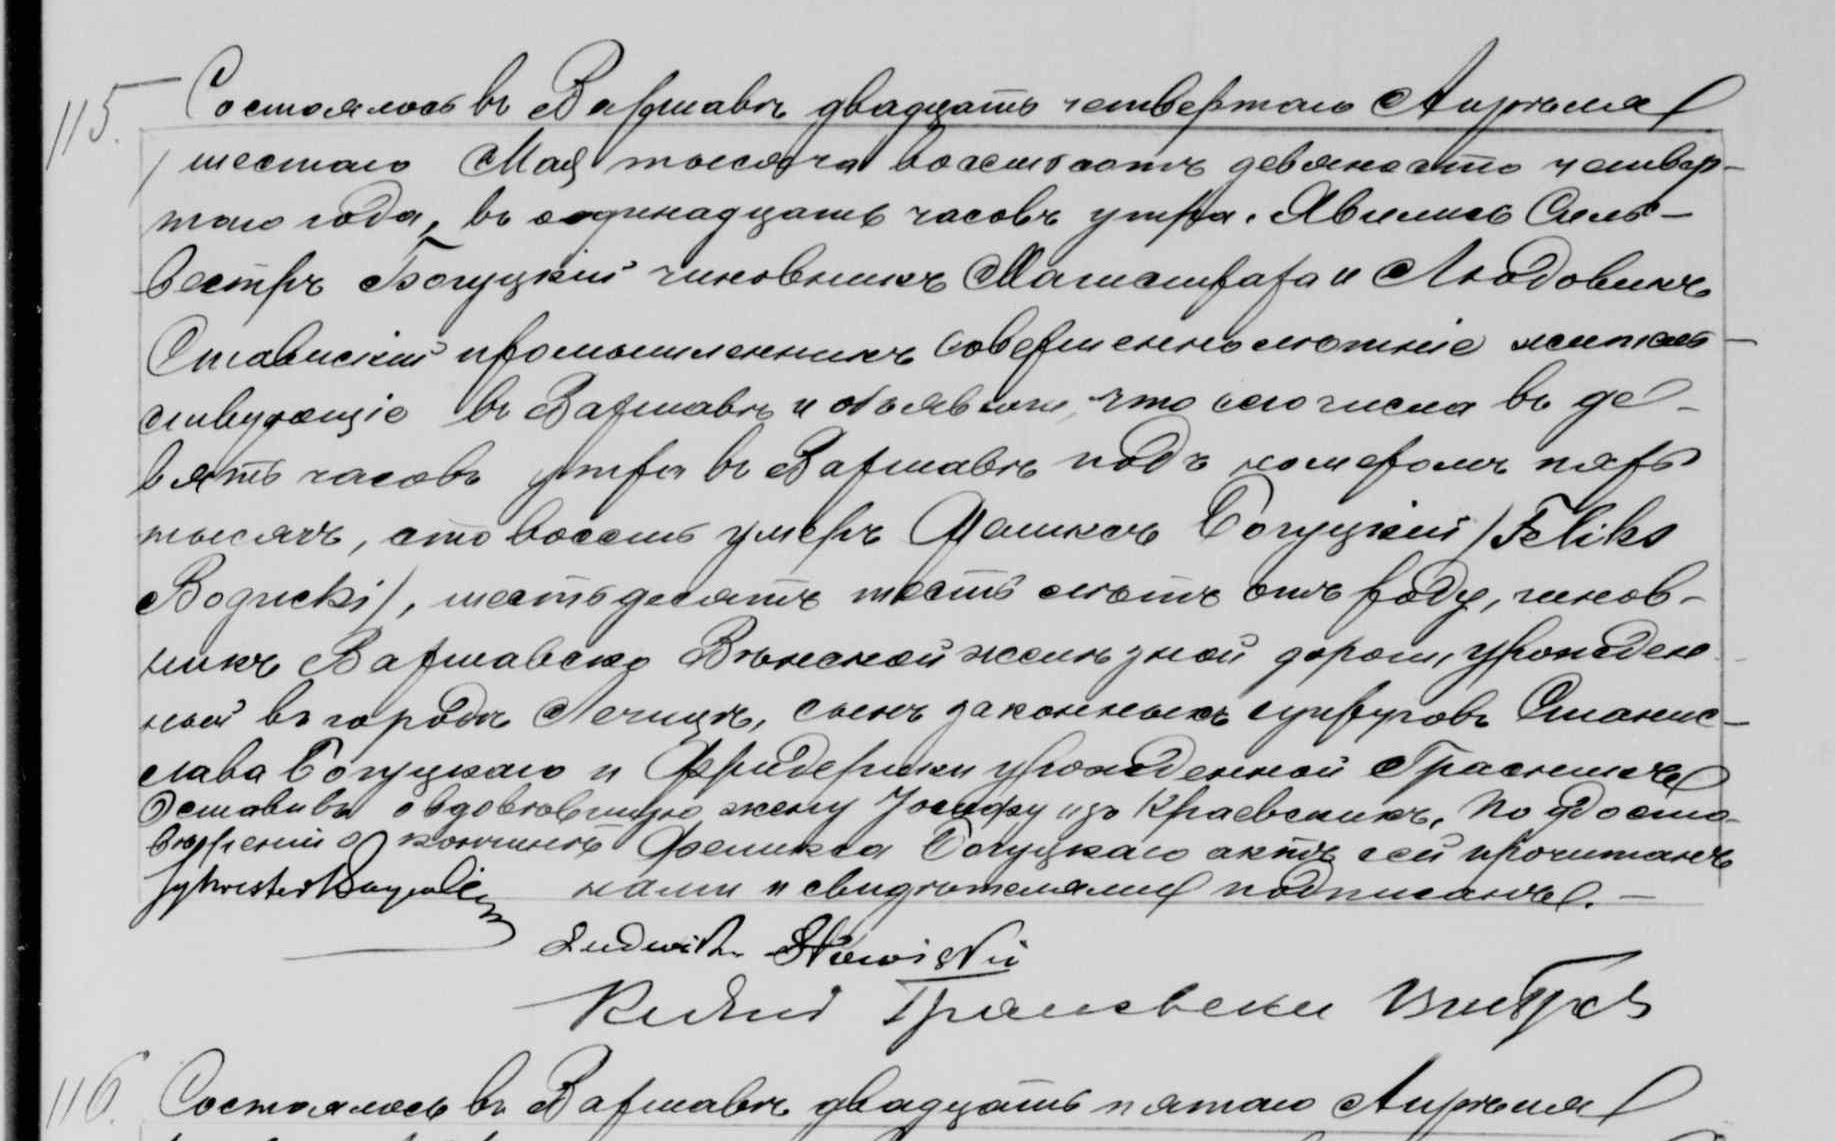 115.
Состоялось въ Варшавѣ двадцать четвертаго Апрѣля
/шестаго Мая/ тысяча восемьсотъ девяносто четвер-
таго года, въ одинадцать часовъ утра. Явились Силь-
вестръ Богуцкій чиновникъ Магистрата и Людовикъ
Ставискій промышленникъ совершеннолѣтніе житель-
ствующіе въ Варшавѣ и объявили, что сего числа въ де-
вять часовъ утра въ Варшавѣ подъ номеромъ пять
тысячъ, сто восемь умеръ Феликсъ Богуцкій /Feliks
Bogucki/, шестьдесятъ шесть лѣтъ отъ роду, чинов-
никъ Варшавско Вѣнской желѣзной дороги, урожден-
ный въ городѣ Лечицѣ, сынъ законныхъ супруговъ Станис-
слава Богуцкаго и Фридерики урожденной
Оставивъ овдовѣвшую жену Іозефу изъ Краевскихъ. По удосто-
вѣреніи о кончинѣ Феликса Богуцкаго актъ сей прочитанъ
нами и свидѣтелями подписанъ. —
Sylwester Bogucki
Ludwik Stawiski
116.
Состоялось въ Варшавѣ двадцать пятаго Апрѣля